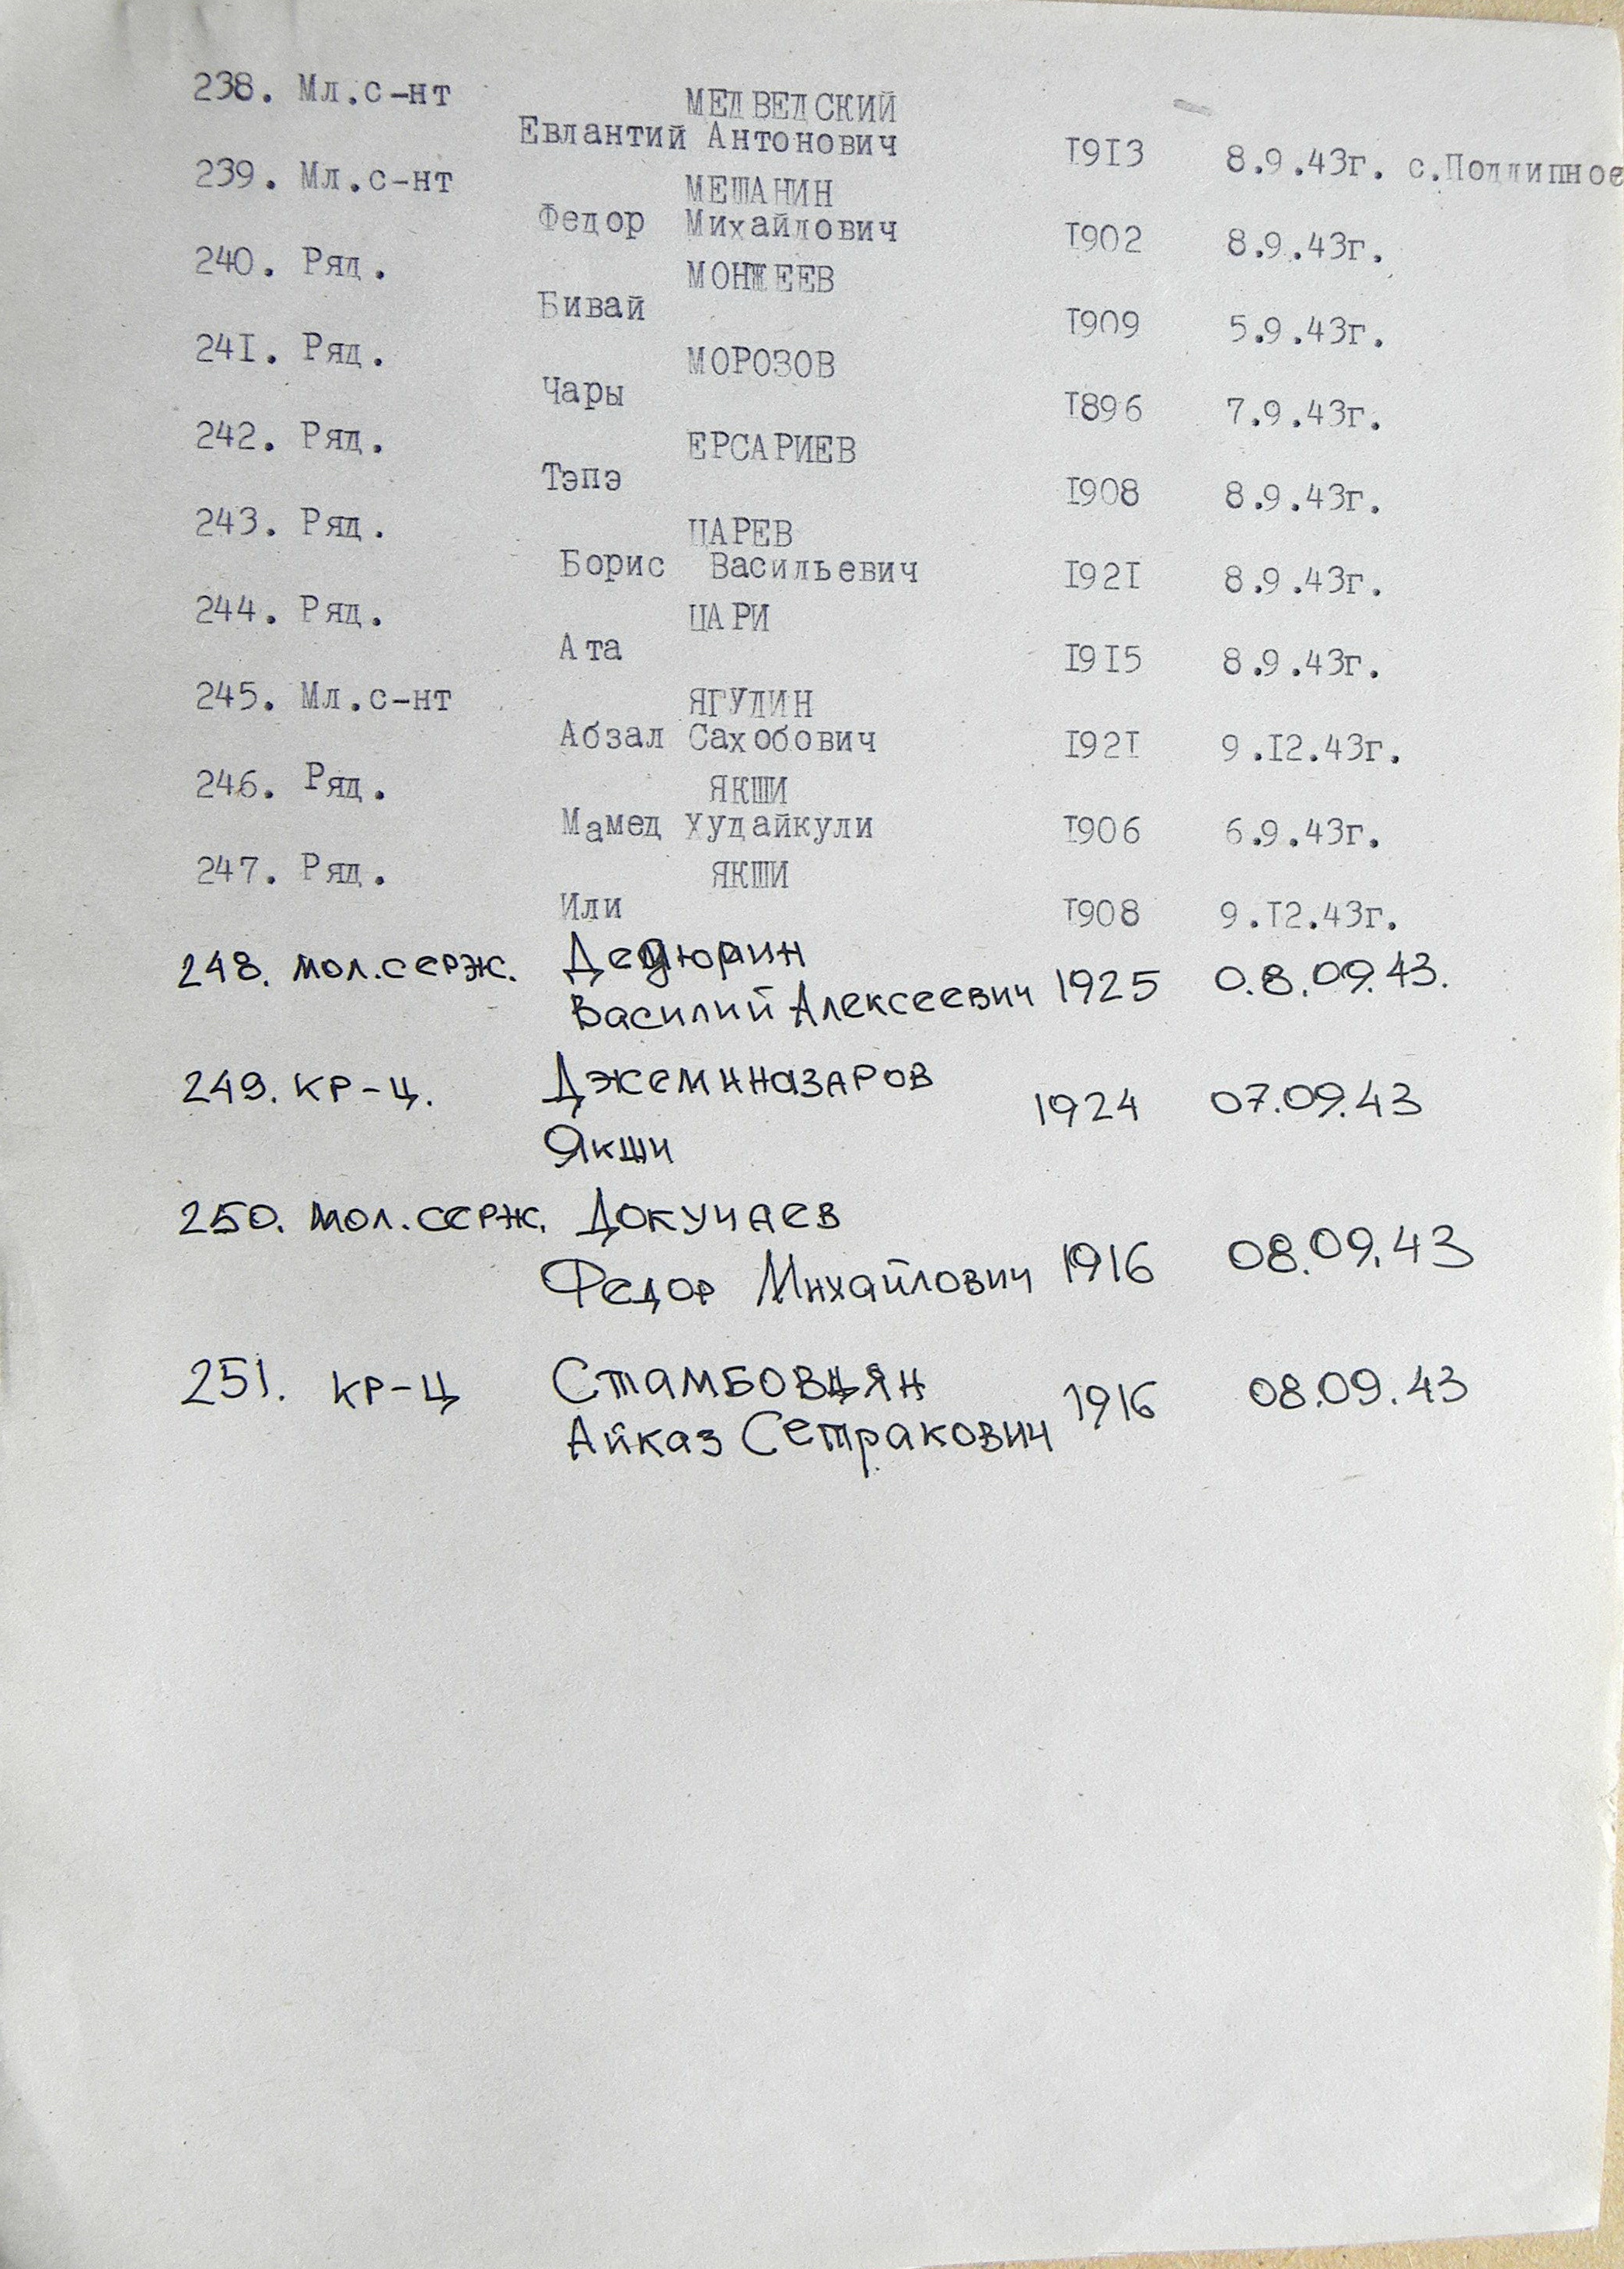 238. Мл.с-нт МЕДВЕДСКИЙ
Евлантий Антонович 1913 8.9.43г. с.Подлипное
239. Мл.с-нт МЕШАНИН
Федор Михайлович 1902 8.9.43г.
240. Ряд. МОНЖЕЕВ
Бивай 1909 5.9.43г.
241. Ряд. МОРОЗОВ
Чары 1896 7.9.43г.
242. Ряд. ЕРСАРИЕВ
Тэпэ 1908 8.9.43г.
243. Ряд. ЦАРЕВ
Борис Васильевич 1921 8.9.43г.
244. Ряд. ЦАРИ
Ата 1915 8.9.43г.
245. Мл.с-нт ЯГУДИН
Абзал Сахобович 1921 9.12.43г.
246. Ряд. ЯКШИ
Мамед Худайкули 1906 6.9.43г.
247. Ряд. ЯКШИ
Или 1908 9.12.43г.
248. мол.серж. Дедюрин
Василий Алексеевич 1925 0.8.09.43.
249. кр-ц. Джеминазаров
Якши 1924 07.09.43
250. мол.серж. Докучаев
Федор Михайлович 1916 08.09.43
251. кр-ц Стамбовцян
Айказ Сетракович 1916 08.09.43